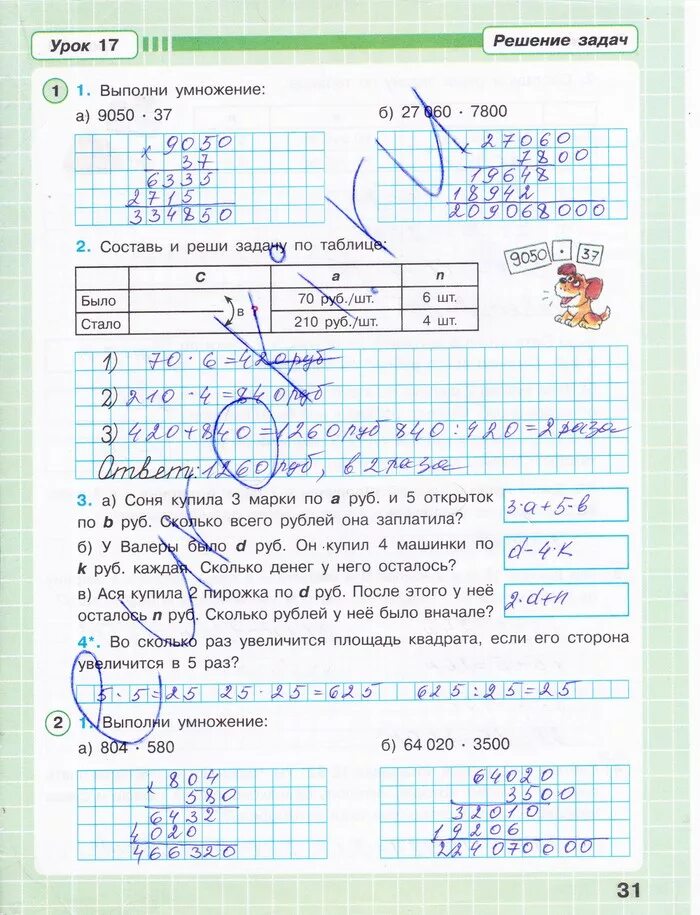 Урок 17
Решение задач
1 1. Выполни умножение:
а) 9050 · 37
б) 27 060 · 7800
× 9050
37
6335
2715
334850
× 27060
7800
19648
18942
209068000
2. Составь и реши задачу по таблице:
9050 · 37
С а n
Было 70 руб./шт. 6 шт.
в ?
Стало 210 руб./шт. 4 шт.
1) 70 · 6 = 420 руб
2) 210 · 4 = 840 руб
3) 420 + 840 = 1260 руб 840 : 420 = 2 раза
Ответ: 1260 руб, в 2 раза
3. а) Соня купила 3 марки по a руб. и 5 открыток
по b руб. Сколько всего рублей она заплатила?
3·a+5·b
б) У Валеры было d руб. Он купил 4 машинки по
k руб. каждая. Сколько денег у него осталось?
d-4·k
в) Ася купила 2 пирожка по d руб. После этого у неё
осталось n руб. Сколько рублей у неё было вначале?
2·d+n
4*. Во сколько раз увеличится площадь квадрата, если его сторона
увеличится в 5 раз?
5 · 5 = 25 25 · 25 = 625 625 : 25 = 25
2 1. Выполни умножение:
а) 804 · 580
б) 64 020 · 3500
× 804
580
6432
4020
466320
64020
3500
32010
19206
224070000
31